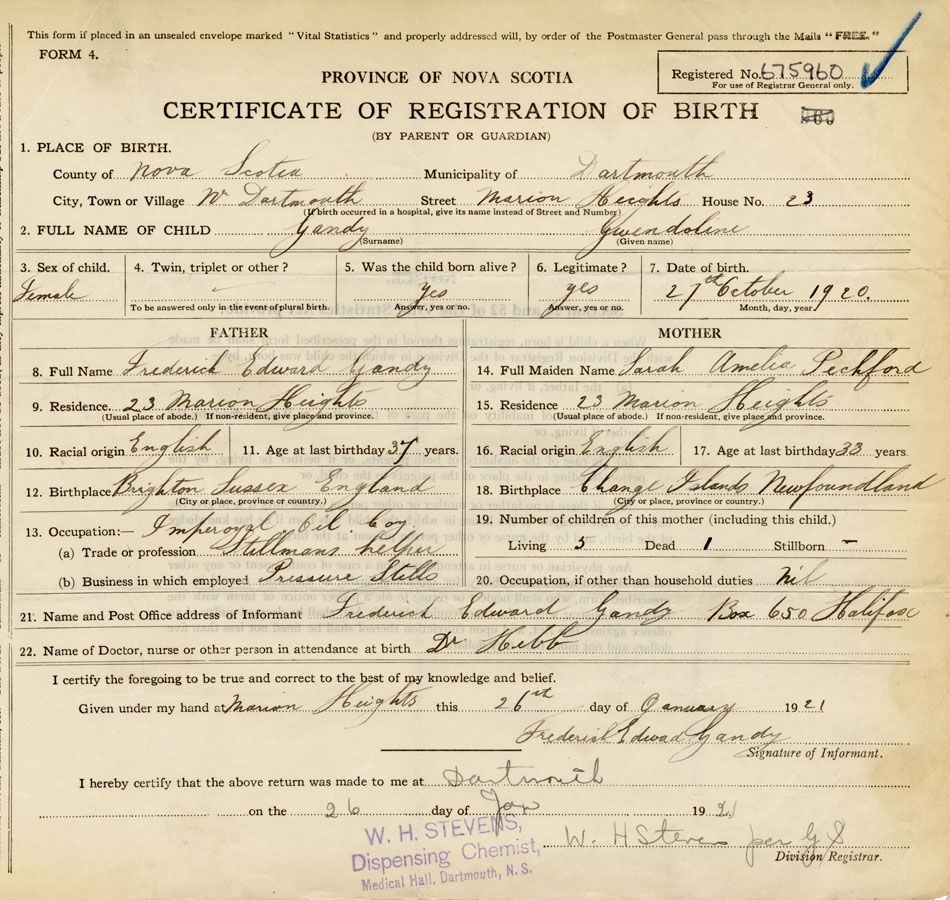 This form if placed in an unsealed envelope marked "Vital Statistics" and properly addressed will, by order of the Postmaster General pass through the Mails "FREE."
FORM 4.
Registered No. 675960
For use of Registrar General only.
PROVINCE OF NOVA SCOTIA
CERTIFICATE OF REGISTRATION OF BIRTH
(BY PARENT OR GUARDIAN)
1. PLACE OF BIRTH.
County of Nova Scotia Municipality of Dartmouth
City, Town or Village Dartmouth Street Marion Heights House No. 23
(If birth occurred in a hospital, give its name instead of Street and Number)
2. FULL NAME OF CHILD Gandy Gwendoline
(Surname) (Given name)
3. Sex of child. 4. Twin, triplet or other? 5. Was the child born alive? 6. Legitimate? 7. Date of birth.
Female yes yes 27 October 1920.
To be answered only in the event of plural birth. Answer, yes or no. Answer, yes or no. Month, day, year
FATHER MOTHER
8. Full Name Frederick Edward Gandy 14. Full Maiden Name Sarah Amelia Peckford
9. Residence. 23 Marion Heights 15. Residence 23 Marion Heights
(Usual place of abode.) If non-resident, give place and province. (Usual place of abode.) If non-resident, give place and province.
10. Racial origin English 11. Age at last birthday 37 years. 16. Racial origin English 17. Age at last birthday 33 years.
12. Birthplace Brighton Sussex England 18. Birthplace Change Islands Newfoundland
(City or place, province or country.) (City or place, province or country.)
13. Occupation:— Imperoyal Oil Coy. 19. Number of children of this mother (including this child.)
(a) Trade or profession Stillmans helper Living 5 Dead 1 Stillborn –
(b) Business in which employed Pressure Stills 20. Occupation, if other than household duties Nil
21. Name and Post Office address of Informant Frederick Edward Gandy Box 650 Halifax
22. Name of Doctor, nurse or other person in attendance at birth Dr Hebb
I certify the foregoing to be true and correct to the best of my knowledge and belief.
Given under my hand at Marion Heights this 26st day of January 1921
Frederick Edward Gandy
Signature of Informant.
I hereby certify that the above return was made to me at Dartmouth
on the 26 day of Jan 1921
W. H. STEVENS,
Dispensing Chemist,
Medical Hall, Dartmouth, N. S.
W. H Stevens per G S
Division Registrar.